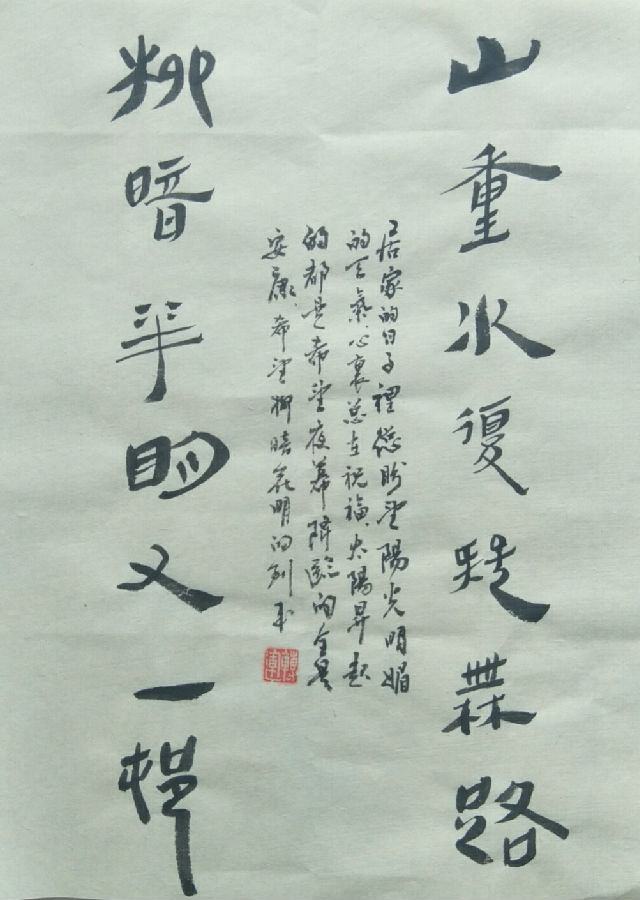 山重水復疑無路
居家的日子裡總盼望陽光明媚
的天氣、心裏總在祝福、太陽昇起
的都是希望夜幕降臨的全是
安康、希望柳暗花明的到來
柳暗華明又一邨